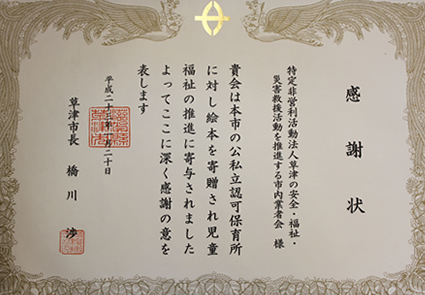 感謝状
特定非営利活動法人草津の安全・福祉・
災害救援活動を推進する市内業者会 様
貴会は本市の公私立認可保育所
に対し絵本を寄贈され児童
福祉の推進に寄与されました
よってここに深く感謝の意を
表します
平成二十 年 月二十日
草津市長 橋川 渉